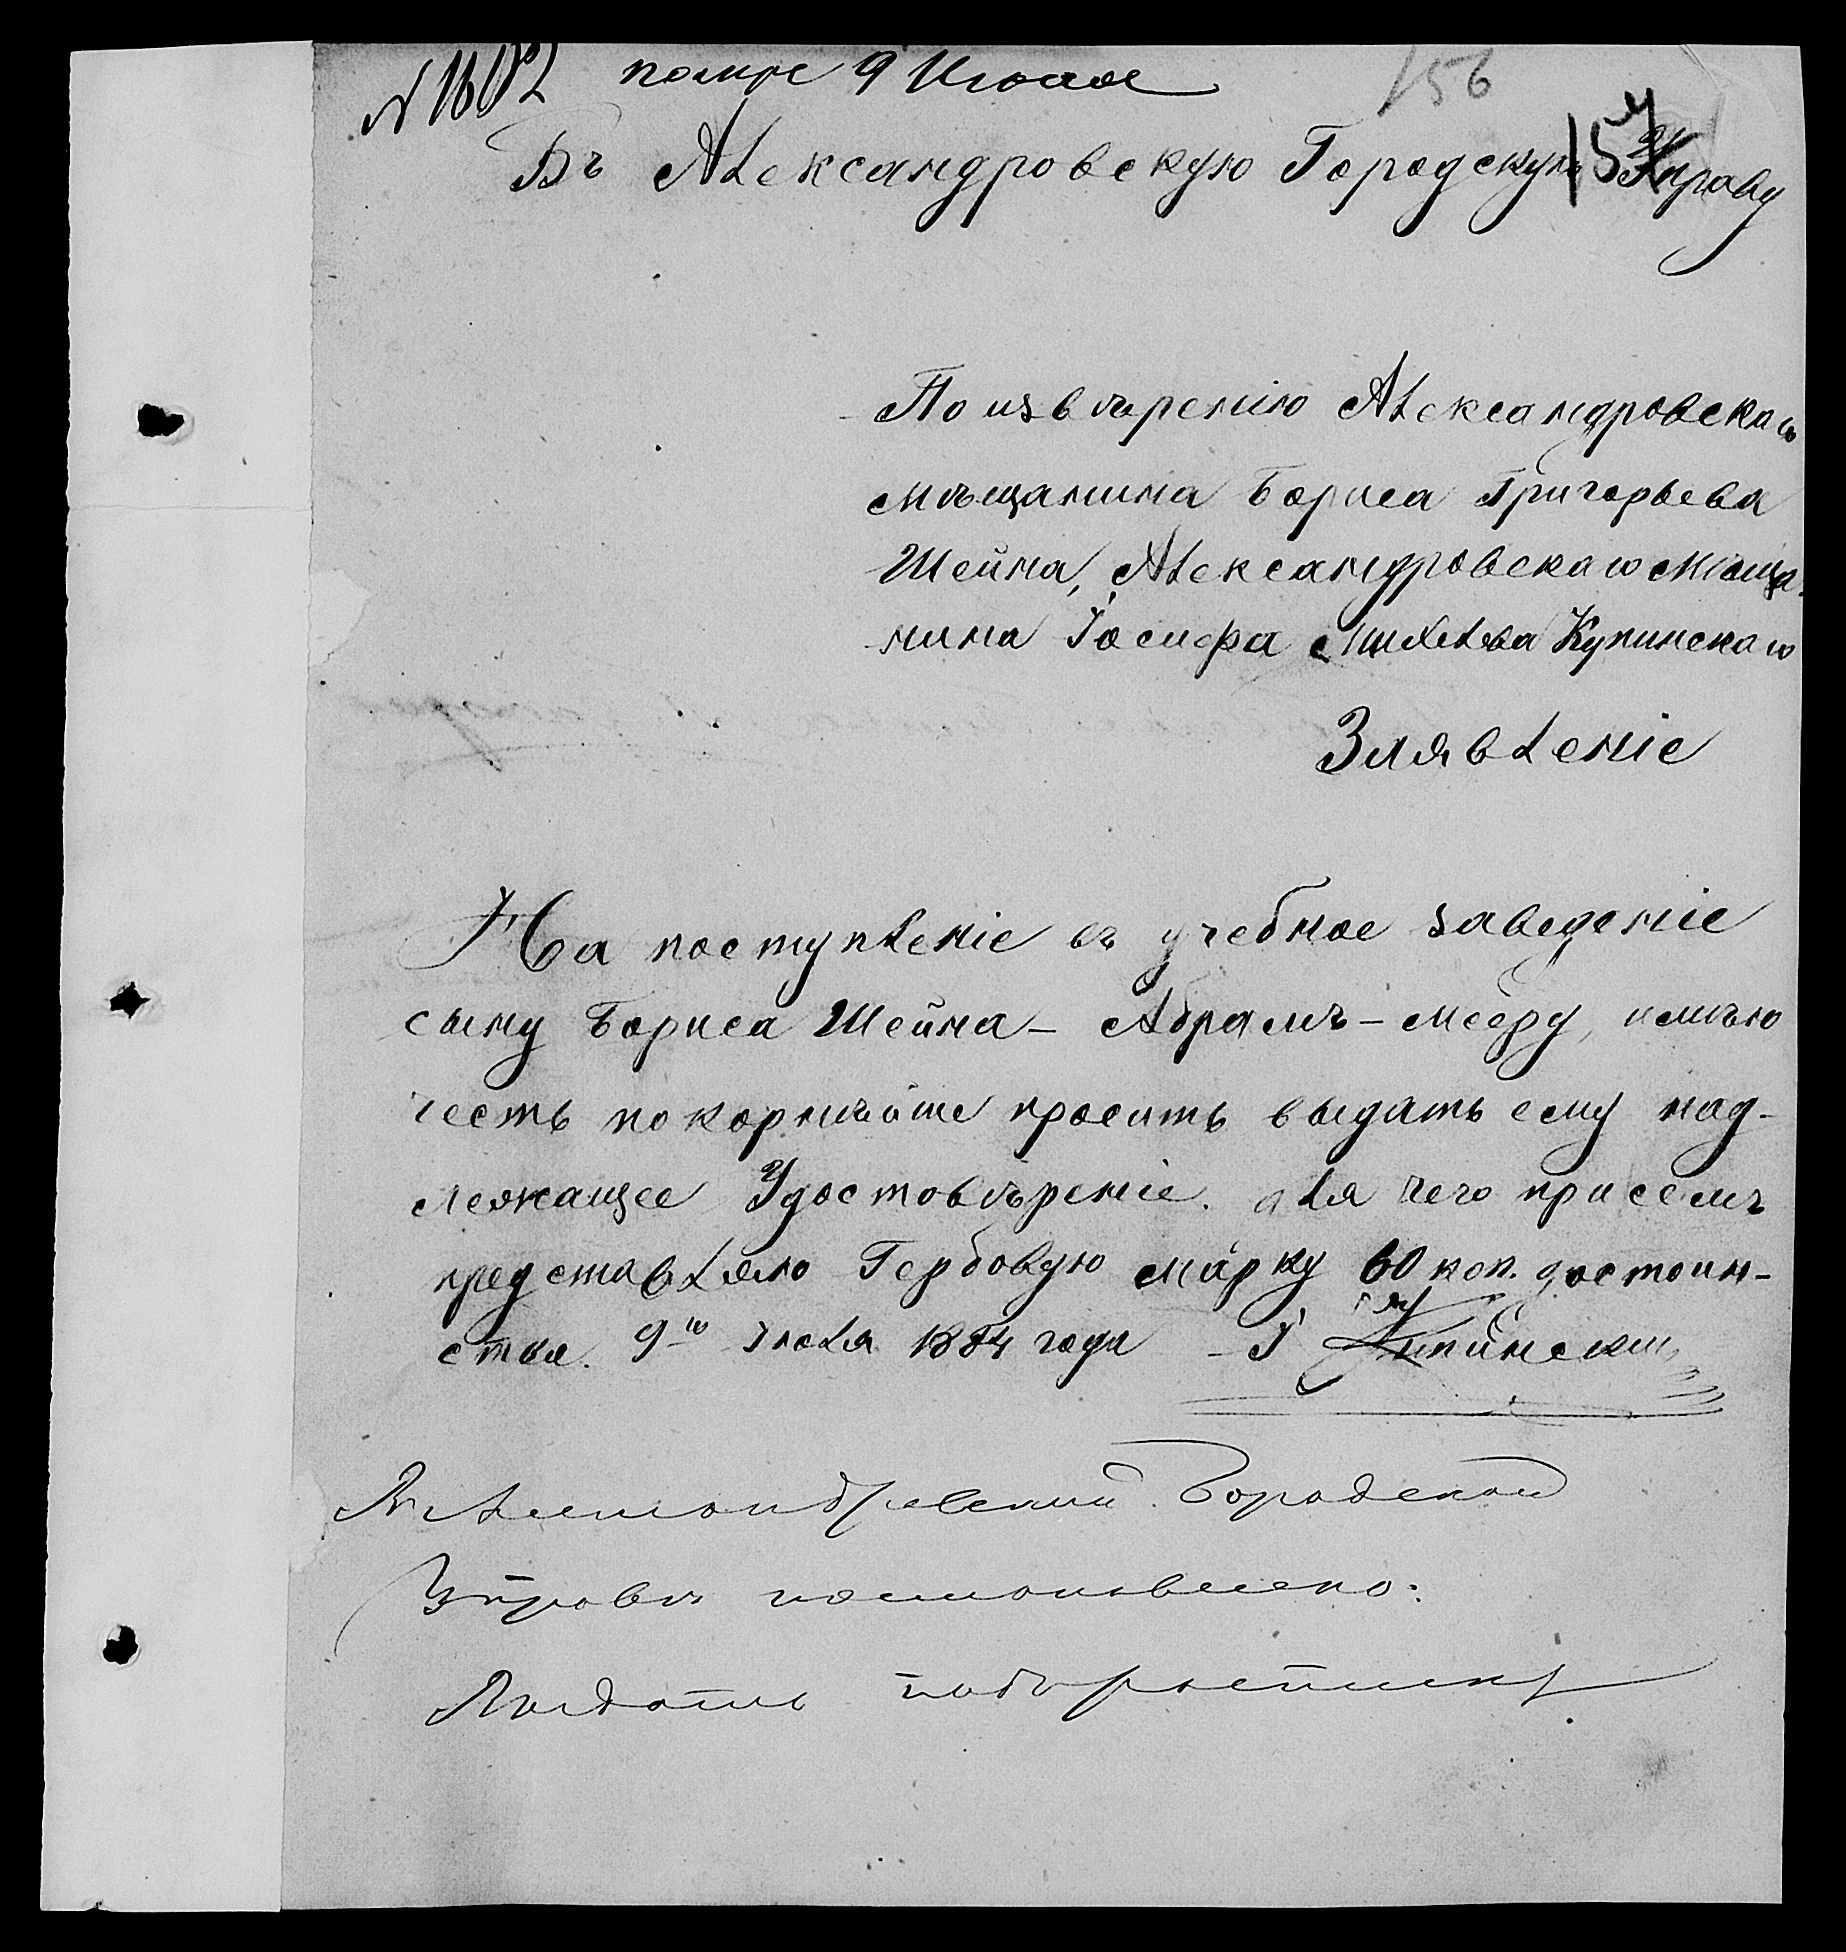 № 1602 получ 9 Июля
156
157
Въ Александровскую Городскую Управу
По извѣренію Александровскаго
мѣщанина Бориса Григорьева
Шейна, Александровскаго мѣща-
нина Іосифа Михелева Купинскаго
Заявленіе
На поступленіе въ учебное заведеніе
сыну Бориса Шейна - Абрамъ-Мееру, имѣю
честь покорнѣйше просить выдать ему над-
лежащее Удостовѣреніе. для чего присемъ
представляю Гербовую марку 60 коп. достоин-
ства. 9го Іюля 1884 года І Купинскій
Александровский Городской
Управы постановлено:
Выдать